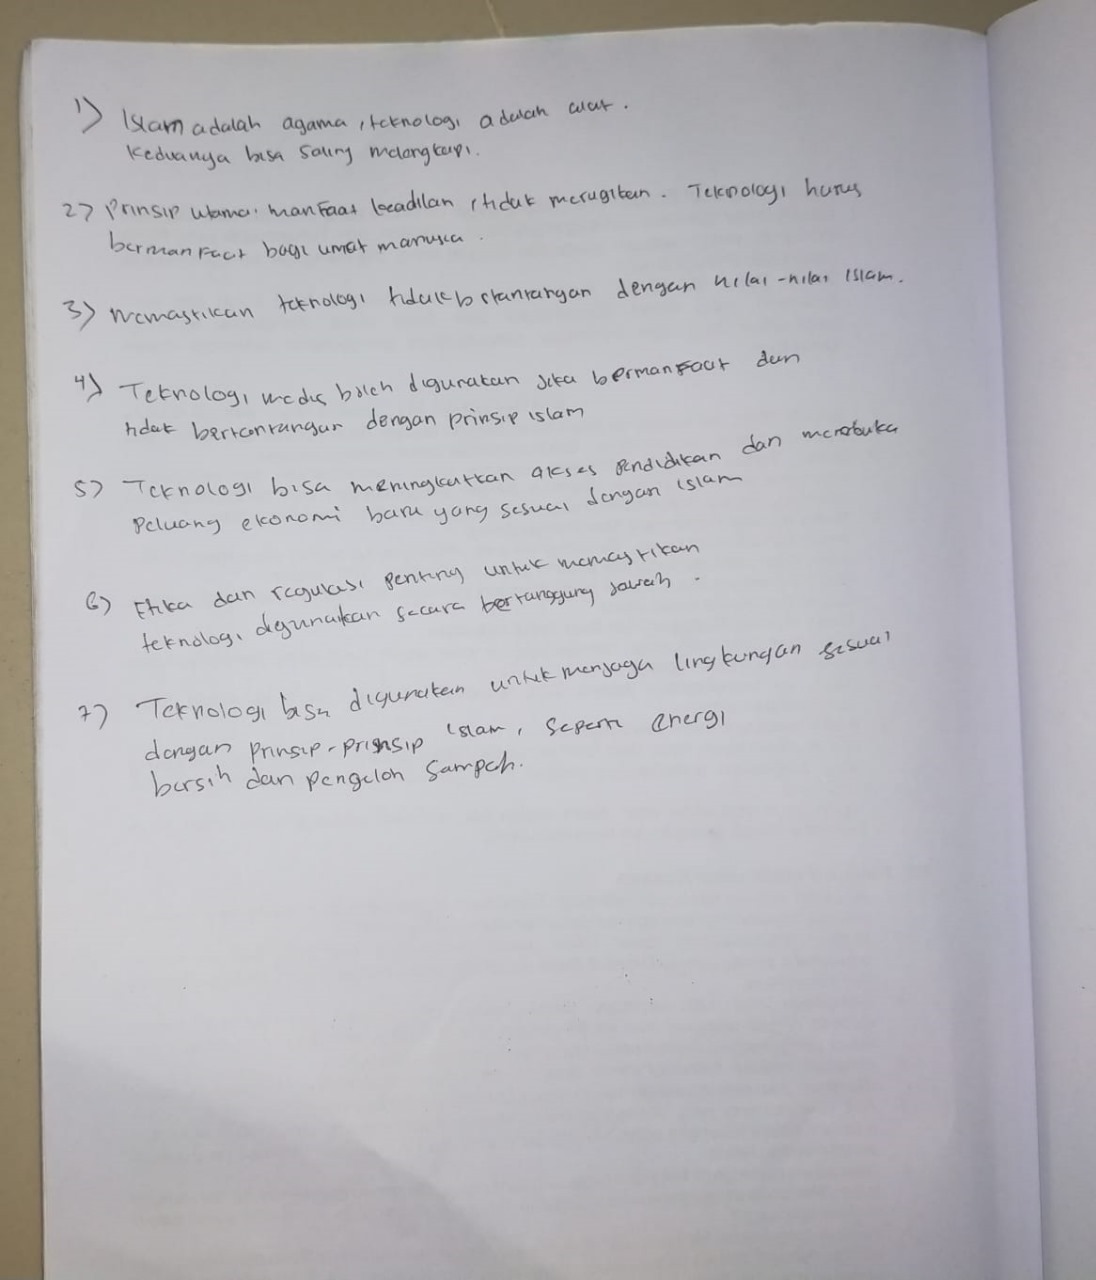 1) Islam adalah agama, teknologi adalah alat.
Keduanya bisa saling melengkapi.
2) Prinsip utama: manfaat keadilan, tidak merugikan. Teknologi harus
bermanfaat bagi umat manusia.
3) Memastikan teknologi tidak bertantangan dengan nilai-nilai Islam.
4) Teknologi medis boleh digunakan jika bermanfaat dan
tidak bertentangan dengan prinsip islam
5) Teknologi bisa meningkatkan akses pendidikan dan membuka
peluang ekonomi baru yang sesuai dengan islam
6) Etika dan regulasi penting untuk memastikan
teknologi digunakan secara bertanggung jawab.
7) Teknologi bisa digunakan untuk menjaga lingkungan sesuai
dengan prinsip-prinsip islam, seperti energi
bersih dan pengeloh sampah.